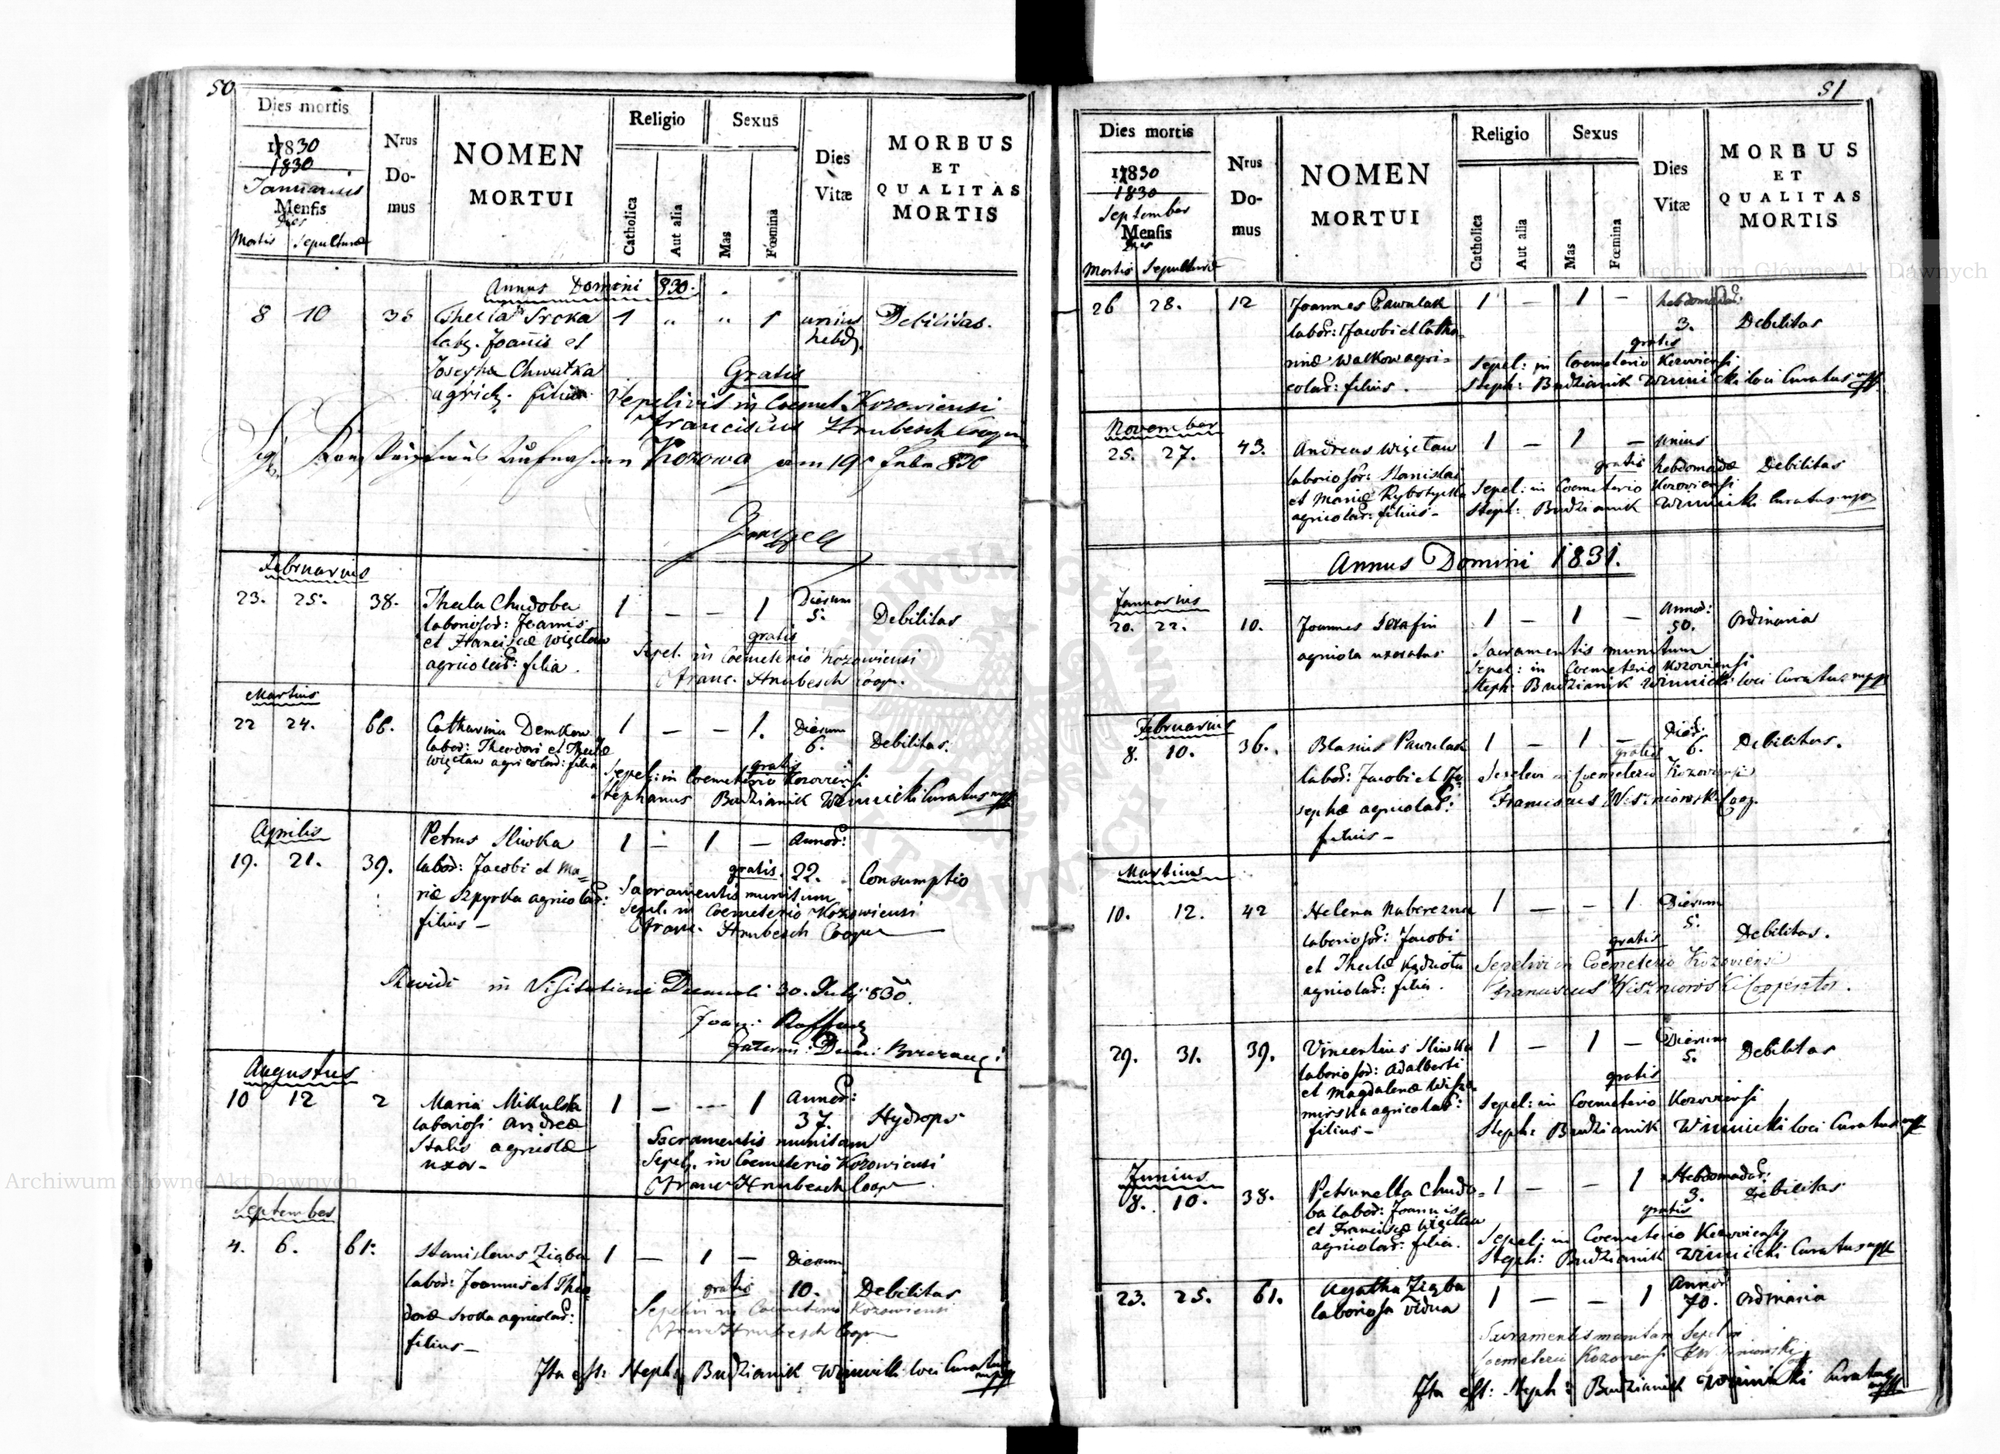 50
Dies mortis
1830
1830
Januarius
Mensis
Dies
Mortis Sepulturæ
Nrus
Do-
mus
NOMEN
MORTUI
Religio
Catholica
Aut alia
Sexus
Mas
Fœmina
Dies
Vitæ
MORBUS
ET
QUALITAS
MORTIS
Annus Domini 830.
8 10 38 Thecla Sroka 1 " " 1 unius Debilitas.
lab. Joañis et hebd.
Josepha Chwutka Gratis
agricz. filia Sepelivit in Coemet. Kozowiensi
Franciscus Hrubesch Coop
Kozowa am 19 830
Februarius
23. 25. 38. Thecla Chudoba 1 — — 1 Dierum 5. Debilitas
laboriosor: Joannis gratis
et Franciscæ Więcław Sepel. in Coemeterio Kozowiensi
agricolar: filia. Franc. Hrubesch coop.
Martius
22 24. 66. Catharina Demkow 1 — — 1. Dierum 6. Debilitas.
labor: Theodori et Theclæ gratis
Więcław agricolar: filia Sepel: in Coemeterio Kozoviensi
Stephanus Budzianik Winnicki Curatus mpp
Aprilis
19. 21. 39. Petrus Sliwka 1 — 1 — Annor: 22. Consumptio
labor: Jacobi et Ma- gratis.
riæ Szpyrka agricolar: Sacramentis munitum
filius — Sepel. in Coemeterio Kozowiensi
Franc. Hrubesch Coop
in Visitatione Decanali 30. July 830.
Joan:
Augustus
10 12 2 Maria Mikulska 1 — — 1 Annor: 37. Hydrops
laboriosi Andreæ Sacramentis munitam
agricolæ Sepel. in Coemeterio Kozowiensi
uxor — Franc Hrubesch Coop
September
4. 6. 61. Stanislaus Zięba 1 — 1 — Dierum 10. Debilitas
labor: Joannis et Theo- gratis
doræ Sroka agricolar: Sepelivi in Coemeterio Kozowiensi
filius — Franc Hrubesch Coop
Ita est: Steph: Budzianik Winnicki loci Curatus mpp
51
Dies mortis
1830
1830
September
Mensis
Dies
Mortis Sepulturæ
Nrus
Do-
mus
NOMEN
MORTUI
Religio
Catholica
Aut alia
Sexus
Mas
Fœmina
Dies
Vitæ
MORBUS
ET
QUALITAS
MORTIS
26 28. 12 Joannes Pawulak 1 — 1 — hebdomadar: 3. Debilitas
labor: Jacobi et Catha- gratis
rinæ Walkow agri- Sepel: in Coemeterio Kozoviensi
colar: filius. Steph: Budzianik Winnicki loci Curatus mpp
November
25. 27. 43. Andreas Więcław 1 — 1 — unius hebdomadæ Debilitas
laboriosor: Stanislai gratis
et Mariæ Rybotycka Sepel: in Coemeterio Kozoviensi
agricolar: filius — Steph: Budzianik Winnicki Curatus mpp
Annus Domini 1831.
Januarius
20. 22. 10. Joannes Serafin 1 — 1 — Annor: 50. Ordinaria
agricola uxoratus Sacramentis munitum
Sepel: in Coemeterio Kozoviensi
Steph: Budzianik Winnicki loci Curatus mpp
Februarius
8. 10. 36. Blasius Pawulak 1 — 1 — Dier: 6. Debilitas.
labor: Jacobi et Jo- gratis
sephæ agricolar: Sepelivi in Coemeterio Kozoviensi
filius — Franciscus Wiszniowski Coop.
Martius
10. 12. 42 Helena Naberezna 1 — — 1 Dierum 5. Debilitas.
laboriosor: Jacobi gratis
et Theclæ Sepelivi in Coemeterio Kozoviensi
agricolar: filia. Franciscus Wiszniowski Cooperator.
29. 31. 39. Vincentius Sliwka 1 — 1 — Dierum 5. Debilitas
laboriosor: Adalberti gratis
et Magdalenæ Wisz- Sepel: in Coemeterio Kozoviensi
mirska agricolar: Steph: Budzianik Winnicki loci Curatus mpp
filius —
Junius
8. 10. 38. Petrunella Chudo- 1 — — 1 Hebdomadar: 3. Debilitas
ba labor: Joannis gratis
et Franciscæ Więcław Sepel: in Coemeterio Kozoviensi
agricolar: filia. Steph: Budzianik Winnicki Curatus mpp
23. 25. 61. Agatha Zięba 1 — — 1 Annor: 70. Ordinaria
laboriosa vidua Sacramentis munitam Sepel in
Coemeterio Kozoviensi F. Wiszniowski
Ita est: Steph: Budzianik Winnicki Curatus mpp
Archiwum Główne Akt Dawnych
Archiwum Główne Akt Dawnych
ARCHIWUM GŁÓWNE AKT DAWNYCH